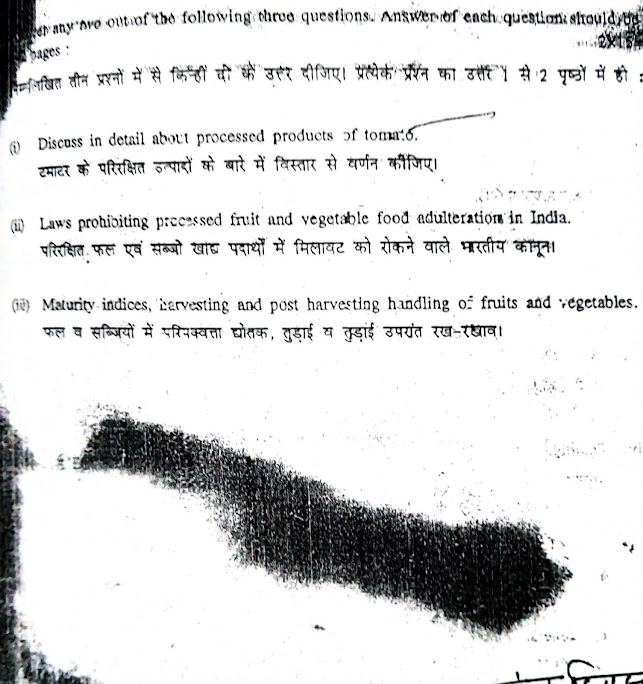 any two out of the following three questions. Answer of each question should be
pages :
निम्नलिखित तीन प्रश्नों में से किन्हीं दो के उत्तर दीजिए। प्रत्येक प्रश्न का उत्तर 1 से 2 पृष्ठों में हो :
(i) Discuss in detail about processed products of tomato.
टमाटर के परिरक्षित उत्पादों के बारे में विस्तार से वर्णन कीजिए।
(ii) Laws prohibiting processed fruit and vegetable food adulteration in India.
परिरक्षित फल एवं सब्जी खाद्य पदार्थों में मिलावट को रोकने वाले भारतीय कानून।
(iii) Maturity indices, harvesting and post harvesting handling of fruits and vegetables.
फल व सब्जियों में परिपक्वता द्योतक, तुड़ाई व तुड़ाई उपरांत रख-रखाव।